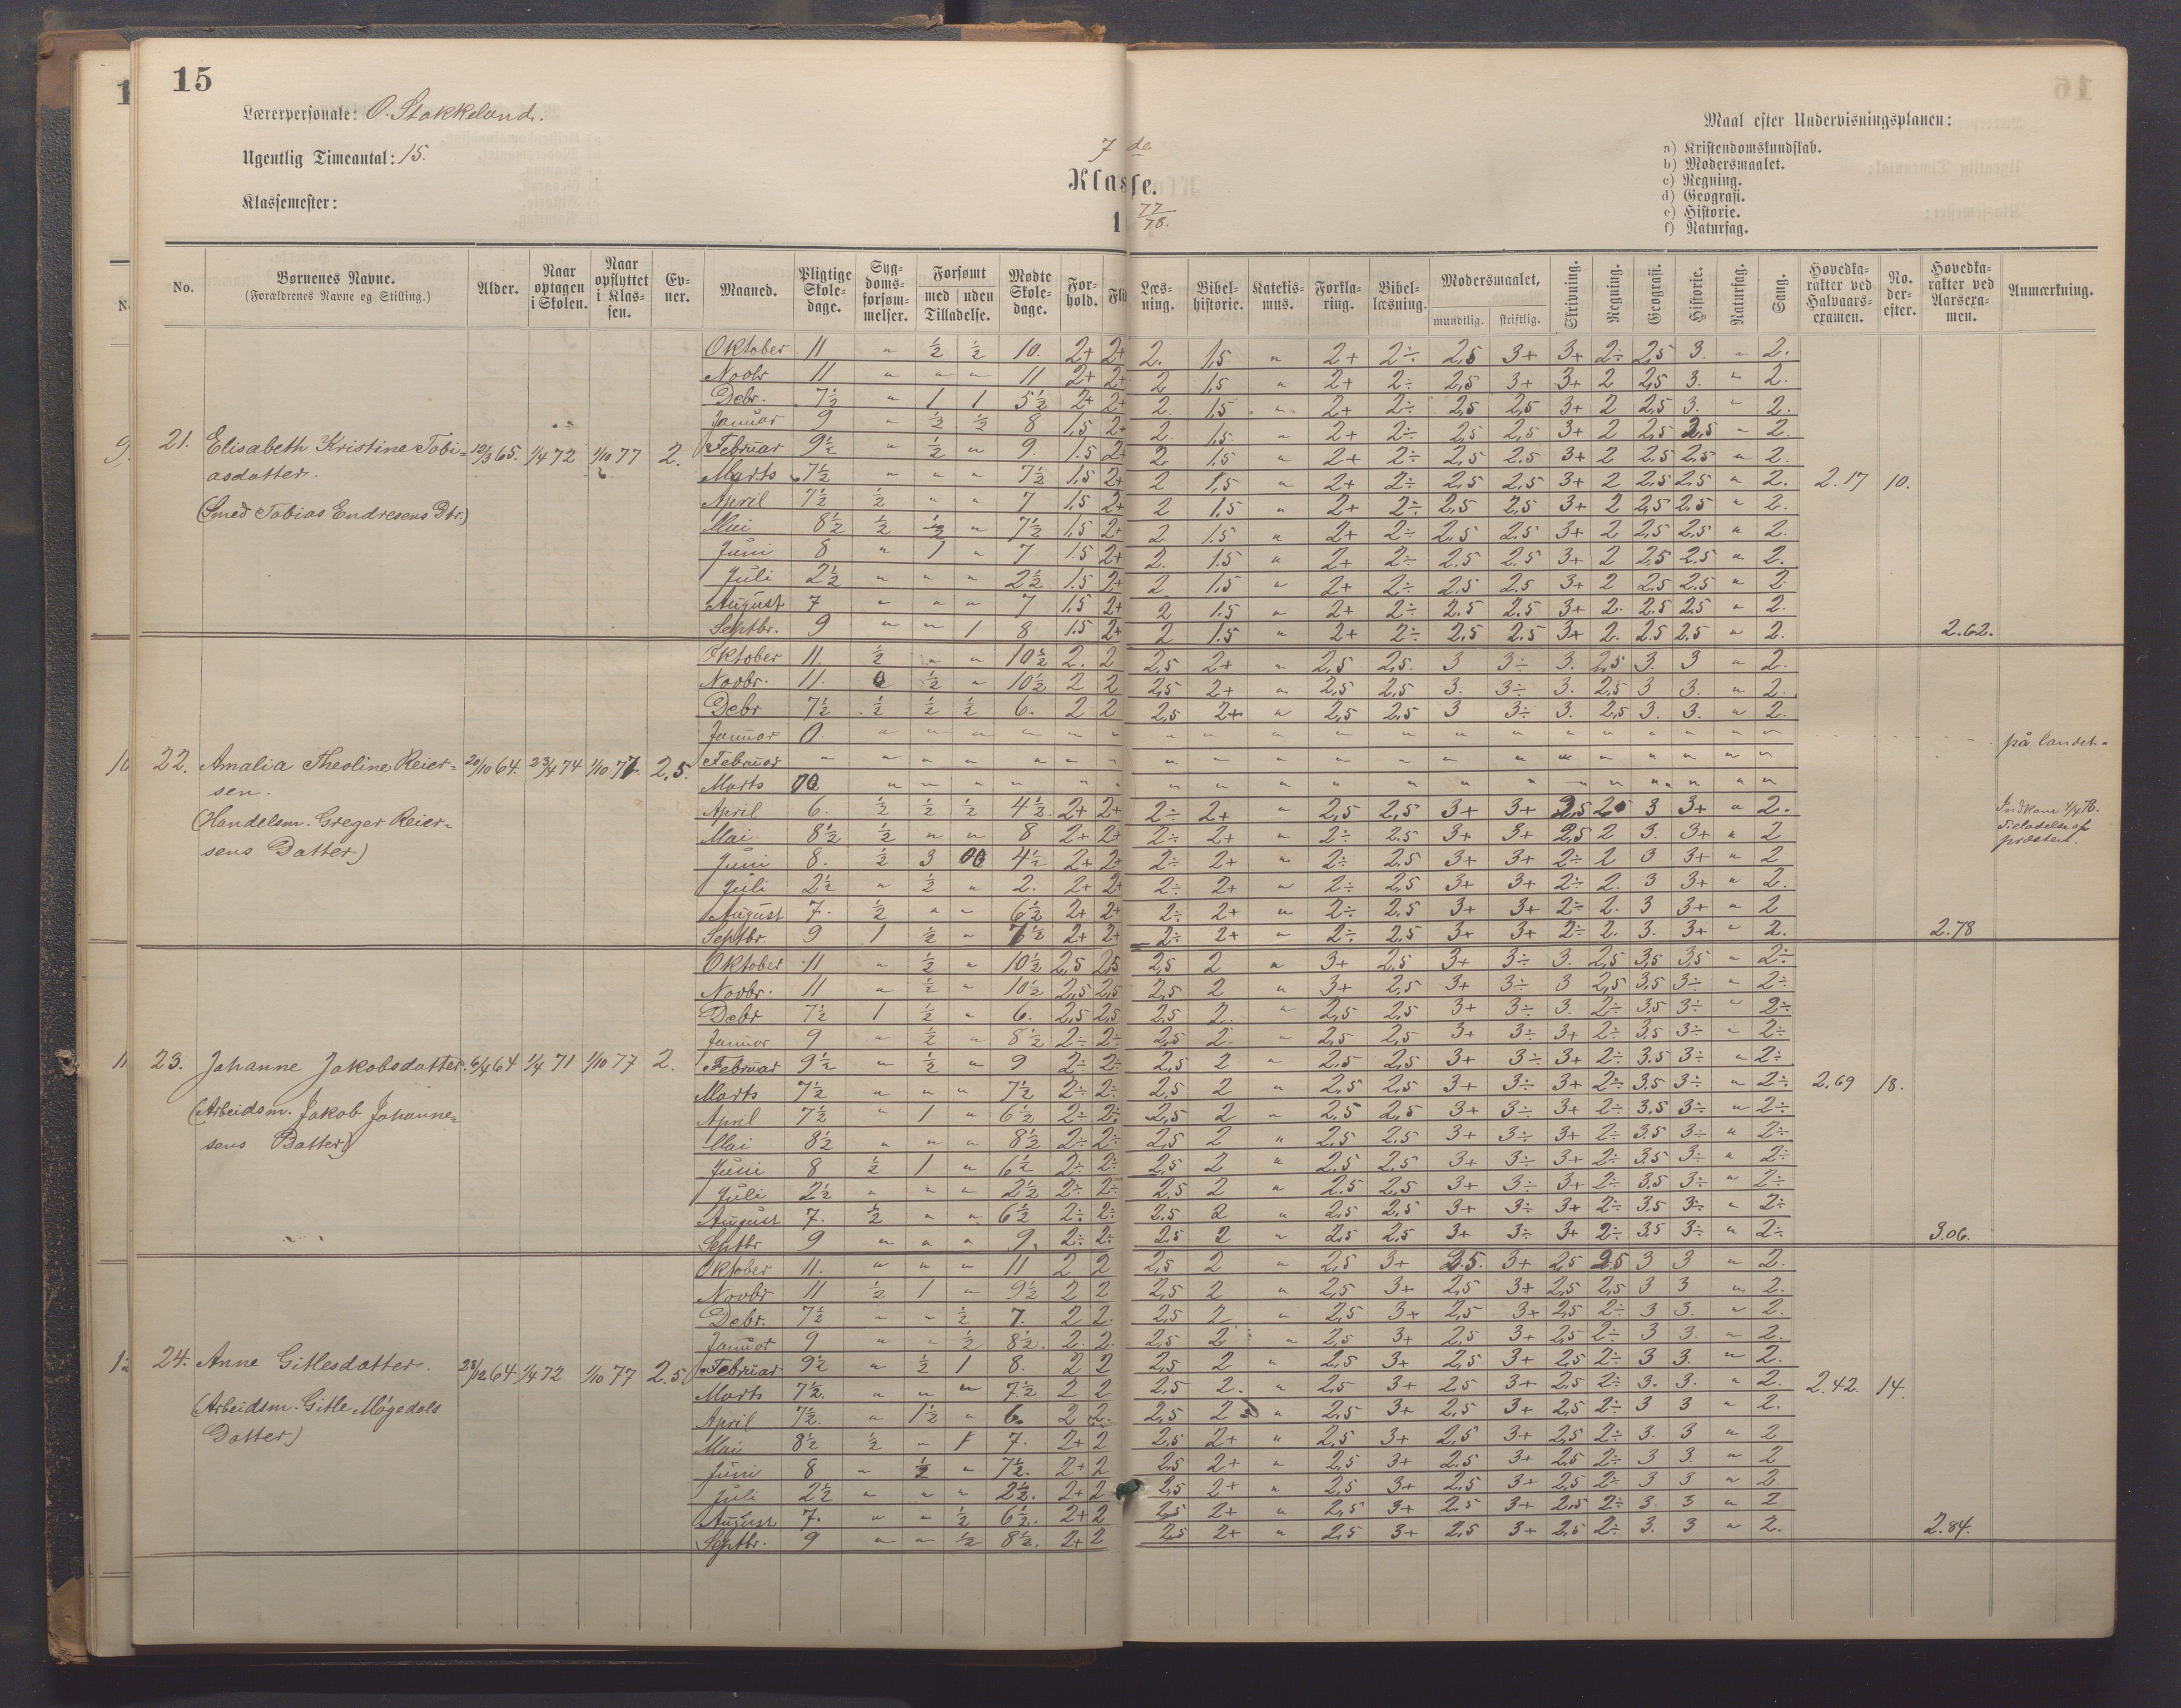 15
Lærerpersonale: O. Stakkeland.
Ugentlig Timeantal: 15.
Klassemester:
7 de
Klasse.
1 77/78.
Maal efter Undervisningsplanen:
a) Kristendomskundskab.
b) Modersmaalet.
c) Regning.
d) Geografi.
e) Historie.
f) Naturfag.
No. Børnenes Navne. (Forældrenes Navne og Stilling.) Alder. Naar optagen i Skolen. Naar opflyttet i Klassen. Evner. Maaned. Pligtige Skoledage. Sygdomsforsømmelser. Forsømt med uden Tilladelse. Mødte Skoledage. Forhold. Fli Læsning. Bibelhistorie. Katekismus. Forklaring. Bibellæsning. Modersmaalet, mundtlig. skriftlig. Skrivning. Regning. Geografi. Historie. Naturfag. Sang. Hovedkarakter ved Halvaarsexamen. No. derefter. Hovedkarakter ved Aarsexamen. Anmærkning.
Oktober 11 " ½ ½ 10. 2+ 2+ 2. 1,5 " 2+ 2÷ 2,5 3+ 3+ 2÷ 2,5 3. " 2.
Novbr 11 " " " 11 2+ 2+ 2 1,5 " 2+ 2÷ 2,5 3+ 3+ 2 2,5 3. " 2.
Debr. 7½ " 1 1 5½ 2+ 2+ 2. 1,5 " 2+ 2÷ 2,5 2,5 3+ 2 2,5 3. " 2.
Januar 9 " ½ ½ 8 1,5 2+ 2. 1,5 " 2+ 2÷ 2,5 2,5 3+ 2 2,5 2,5 " 2.
21. Elisabeth Kristine Tobi= 12/3 65. 1/4 72 1/10 77 2. Februar 9½ " ½ " 9. 1.5 2+ 2 1,5 " 2+ 2÷ 2,5 2.5 3+ 2 2.5 2.5 " 2.
asdatter. Marts 7½ " " " 7½ 1,5 2+ 2 1,5 " 2+ 2÷ 2,5 2,5 3+ 2 2,5 2.5 " 2. 2.17 10.
(Smed Tobias Endresens Dtr.) April 7½ ½ " " 7 1,5 2+ 2 1.5 " 2+ 2÷ 2,5 2,5 3+ 2 2,5 2.5 " 2.
Mai 8½ ½ ½ " 7½ 1,5 2+ 2 1.5 " 2+ 2÷ 2,5 2.5 3+ 2 2,5 2,5 " 2.
Juni 8 " 1 " 7 1.5 2+ 2. 1.5 " 2+ 2÷ 2.5 2.5 3+ 2 2,5 2.5 " 2.
Juli 2½ " " " 2½ 1.5 2+ 2 1,5 " 2+ 2÷ 2,5 2,5 3+ 2 2,5 2,5 " 2
August 7 " " " 7 1,5 2+ 2 1.5 " 2+ 2÷ 2.5 2.5 3+ 2. 2.5 2.5 " 2.
Septbr. 9 " " 1 8 1.5 2+ 2 1.5 " 2+ 2÷ 2,5 2.5 3+ 2. 2.5 2.5 " 2. 2.62.
Oktober 11. ½ " " 10½ 2. 2 2,5 2+ " 2,5 2,5. 3 3÷ 3. 2,5 3. 3 " 2.
Novbr. 11. ½ " 10½ 2 2 2,5 2+ " 2,5 2,5 3. 3÷ 3. 2.5 3 3. " 2.
Debr 7½ ½ ½ ½ 6. 2 2 2,5 2+ " 2,5 2,5 3 3÷ 3. 2,5 3. 3. " 2.
Januar 0. " " " " " " " " " " " " " " " " " " " på landet.
22. Amalia Theoline Reier= 20/10 64. 23/4 74 1/10 77. 2,5. Februar " " " " " " " " " " " " " " " " " " " "
sen. Marts " " " " " " " " " " " " " " " " " " "
(Handelsm. Greger Reier= April 6. ½ ½ ½ 4½. 2+ 2+ 2÷ 2+ " 2,5 2,5 3+ 3+ 2,5 3 3+ " 2. Indkom 1/4 78.
sens Datter) Mai 8½ ½ " " 8 2+ 2+ 2÷ 2+ " 2÷ 2.5 3+ 3+ 2,5 2 3. 3+ " 2
Juni 8. ½ 3 4½ 2+ 2+ 2÷ 2+ " 2÷ 2.5 3+ 3+ 2÷ 2 3 3+ " 2 præsten.
Juli 2½ " ½ " 2. 2+ 2+ 2÷ 2+ " 2÷ 2,5 3+ 3+ 2÷ 2. 3 3+ " 2.
August 7. ½ " " 6½ 2+ 2+ 2÷ 2+ " 2÷ 2.5 3+ 3+ 2÷ 2. 3 3+ " 2
Septbr. 9 1 ½ " 7½ 2+ 2+ 2÷ 2+ " 2÷ 2,5 3+ 3+ 2÷ 2. 3. 3+ " 2. 2.78
Oktober 11 " ½ " 10½ 2,5 2,5 2,5 2 " 3+ 2.5 3+ 3÷ 3. 2,5 3,5 3,5 " 2÷
Novbr. 11 " ½ " 10½ 2,5 2,5 2,5 2 " 3+ 2,5 3+ 3÷ 3 2,5 3.5 3÷ " 2÷
Debr 7½ 1 ½ " 6. 2,5 2,5 2,5 2. " 2,5 2,5 3+ 3÷ 3. 2÷ 3.5 3÷ " 2÷
Januar 9 " ½ " 8½ 2÷ 2÷ 2,5 2. " 2,5 2,5 3+ 3÷ 3+ 2÷ 3,5 3÷ " 2÷
23. Johanne Jakobsdatter. 6/4 64 1/4 71 1/10 77 2. Februar 9½ " ½ " 9 2÷ 2÷ 2,5 2 " 2.5 2,5 3+ 3÷ 3+ 2÷ 3.5 3÷ " 2÷
Marts 7½ " " " 7½ 2÷ 2÷ 2,5 2 " 2,5 2,5 3+ 3÷ 3+ 2÷ 3,5 3÷ " 2÷ 2,69 18.
(Arbeidsm. Jakob Johanne= April 7½ " 1 " 6½ 2÷ 2÷ 2,5 2 " 2.5 2,5 3+ 3÷ 3+ 2÷ 3.5 3÷ " 2÷
sens Datter) Mai 8½ " " " 8½ 2÷ 2÷ 2,5 2 " 2,5 2.5 3+ 3÷ 3+ 2÷ 3.5 3÷ " 2÷
Juni 8 ½ 1 " 6½ 2÷ 2÷ 2,5 2 " 2,5 2.5 3+ 3÷ 3+ 2÷ 3.5 3÷ " 2÷
Juli 2½ " " " 2½ 2÷ 2÷ 2,5 2 " 2.5 2,5 3+ 3÷ 3+ 2÷ 3.5 3÷ " 2÷
August 7. ½ " " 6½ 2÷ 2÷ 2.5 2 " 2.5 2.5 3+ 3÷ 3+ 2÷ 3.5 3÷ " 2÷
Septbr 9 " " " 9. 2÷ 2÷ 2.5 2 " 2.5 2.5 3+ 3÷ 3+ 2÷ 3.5 3÷ " 2÷ 3.06.
Oktober 11. " " " 11 2 2 2,5 2 " 2,5 3+ 3+ 2,5 2.5 3 3 " 2.
Novbr 11 ½ 1 " 9½ 2 2 2,5 2 " 2,5 3+ 2,5 3+ 2,5 2,5 3 3 " 2.
Debr. 7½ " " ½ 7. 2 2. 2,5 2 " 2,5 3+ 2,5 3+ 2,5 2÷ 3 3. " 2.
Januar 9 " " ½ 8½. 2. 2. 2,5 2 " 2,5 3+ 2,5 3+ 2,5 2÷ 3 3. " 2.
24. Anne Gitlesdatter. 28/12 64 1/4 72 1/10 77 2.5. Februar 9½ " ½ 1 8. 2 2 2,5 2 " 2,5 3+ 2,5 3+ 2,5 2÷ 3 3. " 2.
Marts 7½. " " " 7½ 2 2 2,5 2. " 2,5 3+ 2,5 3+ 2,5 2÷ 3. 3. " 2. 2.42. 14.
(Arbeidsm. Gitle Møgedals April 7½. " 1½ " 6. 2 2. 2,5 2 " 2,5 3+ 2,5 3+ 2,5 2÷ 3 3 " 2.
Datter) Mai 8½ ½ " 1 7. 2+ 2 2,5 2+ " 2,5 3+ 2,5 3+ 2,5 2÷ 3. 3 " 2
Juni 8 " ½ " 7½. 2+ 2 2,5 2+ " 2,5 3+ 2,5 3+ 2,5 2÷ 3 3. " 2
Juli 2½ " " " 2½. 2+ 2 2,5 2+ " 2,5 3+ 2,5 3+ 2,5 2÷ 3 3 " 2
August 7. " " ½ 6½. 2+ 2 2,5 2+ " 2,5 3+ 2,5 3+ 2,5 2÷ 3. 3 " 2
Septbr. 9 " " ½ 8½. 2+ 2 2,5 2+ " 2.5 3+ 2,5 3+ 2.5 2÷ 3. 3 " 2. 2.84.